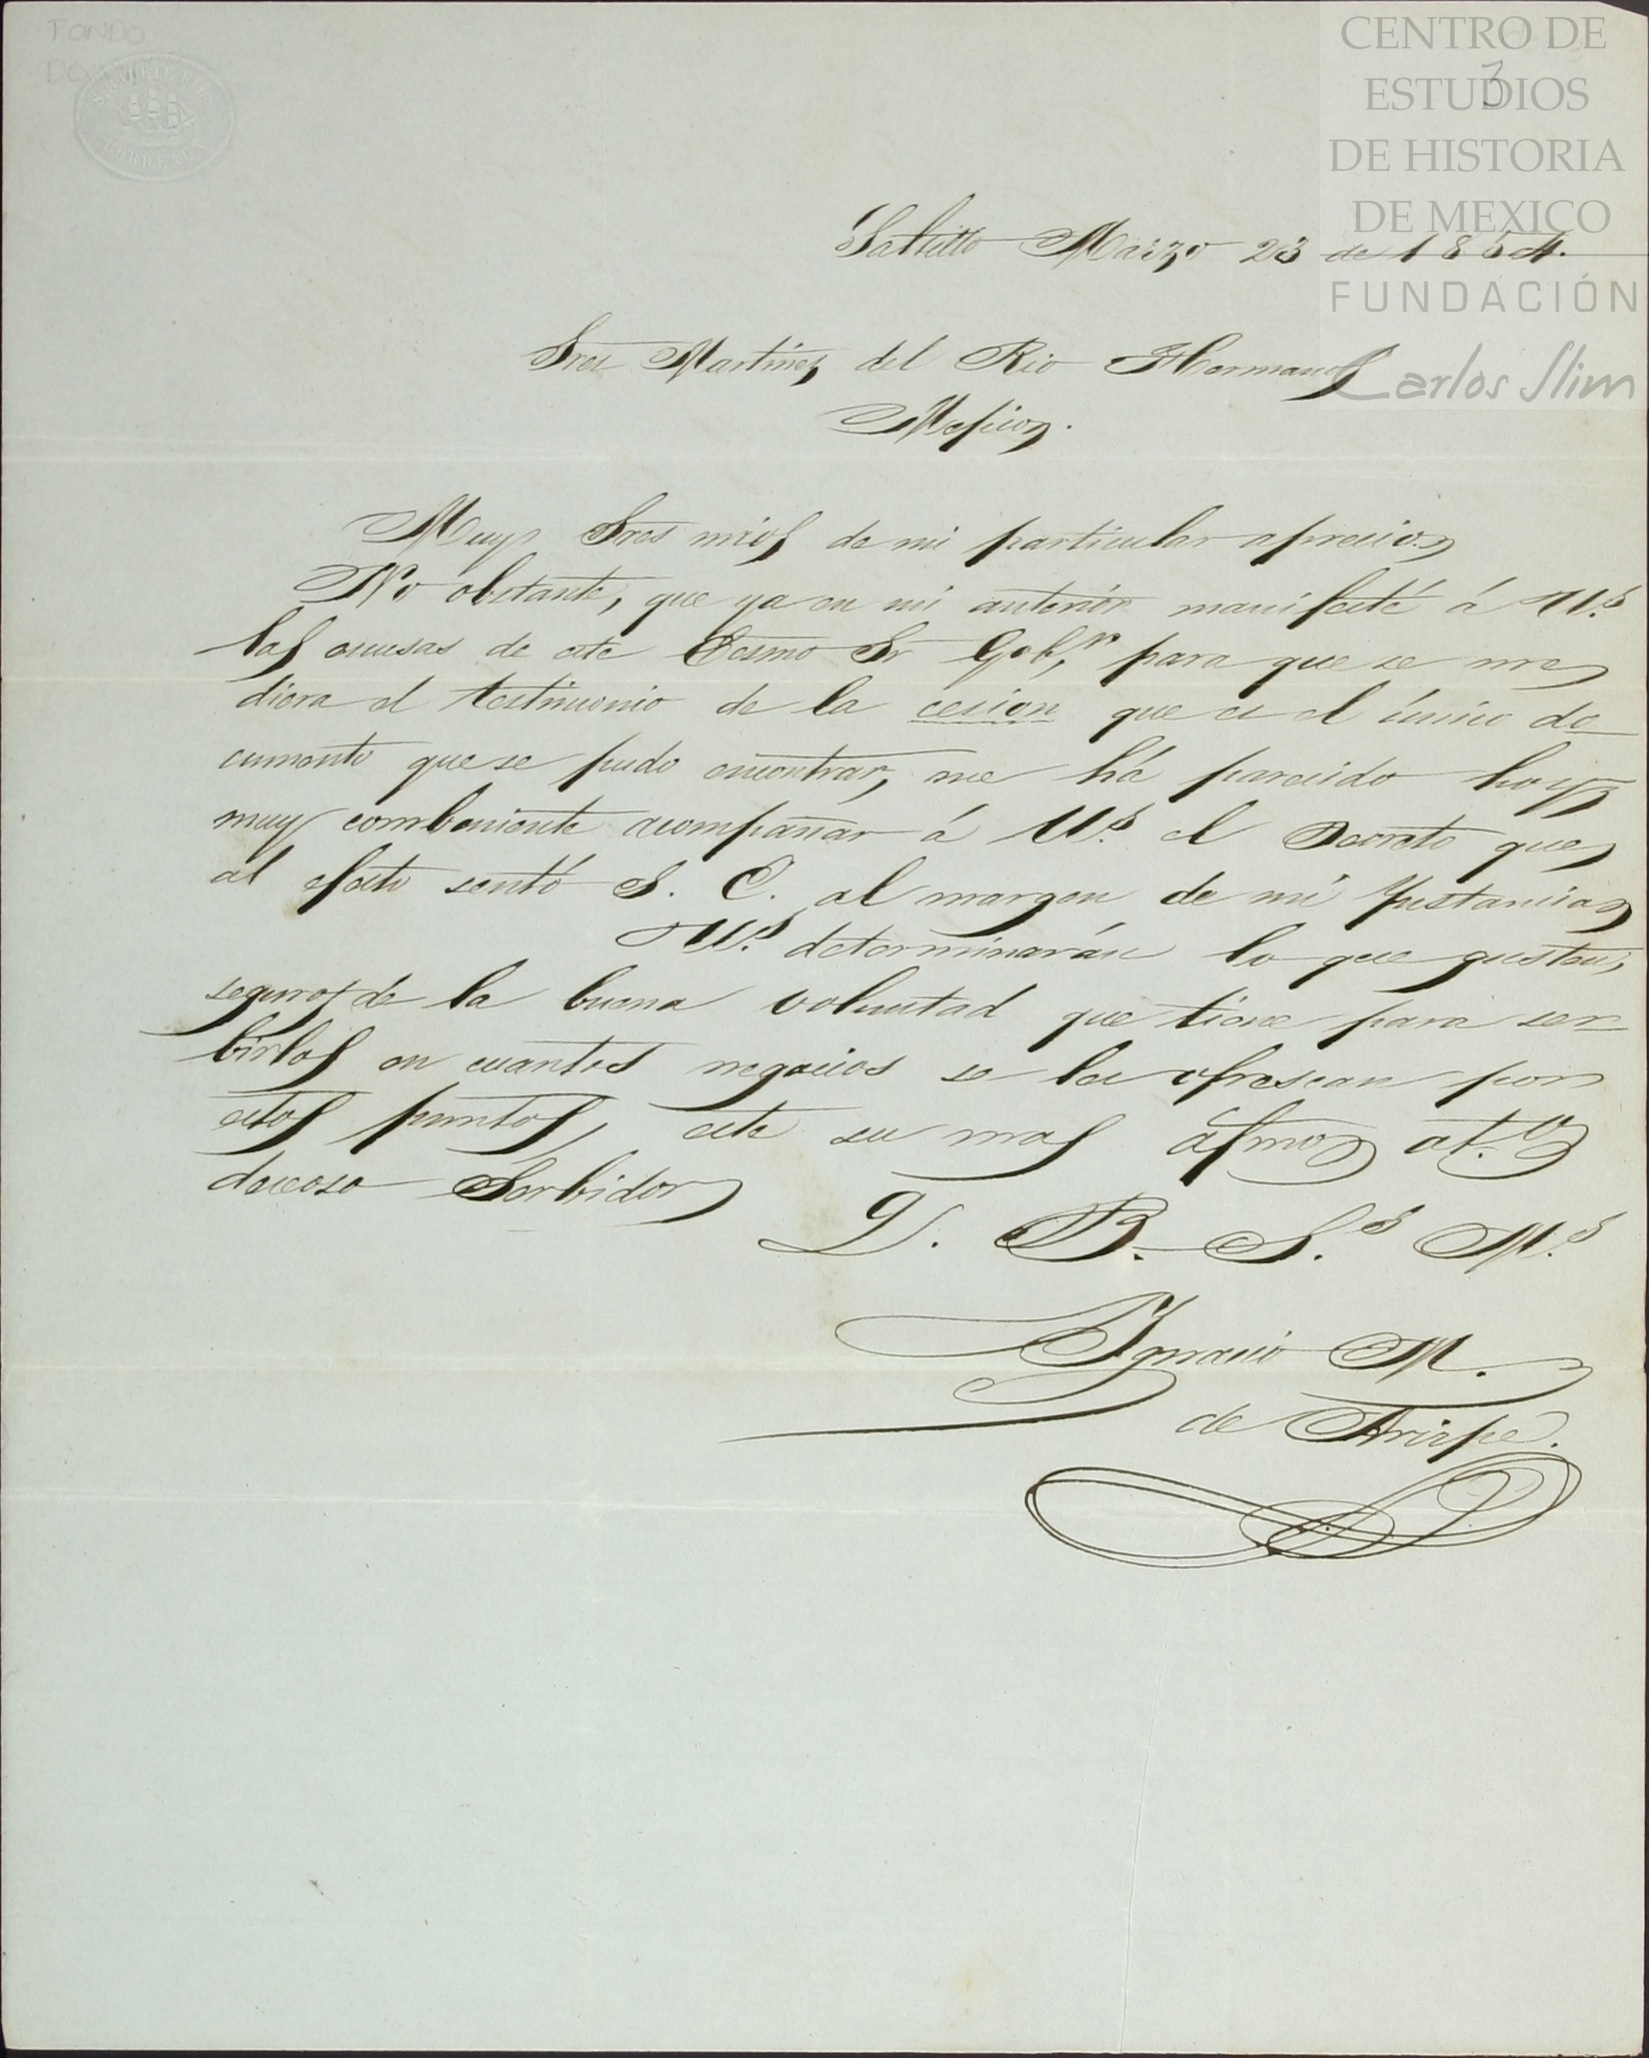 FONDO
CENTRO DE
ESTUDIOS
3
DE HISTORIA
DE MEXICO
FUNDACIÓN
Carlos Slim
Saltillo Marzo 23 de 1854.
Sres Martinez del Rio Hermanos
Mejico.
Muy Sres mios de mi particular aprecio.
No obstante, que ya en mi anterior manifesté á UU.s
las escusas de este Ecsmo Sr Gob.r para que se me
diera el testimonio de la cesion que es el único do
cumento que se pudo encontrar, me há parecido hoy
muy combeniente acompañar á UU.s el Decreto que
al efecto sentó S. E. al margen de mi Ynstancia
UU.s determinarán lo que gusten,
seguros de la buena voluntad que tiene para ser
birlos en cuantos negocios se les ofrescan por
estos puntos, este su mas afmo at.o
deceoso Serbidor
Q. B. S.s M.s
Ygnacio M.
de Arizpe.